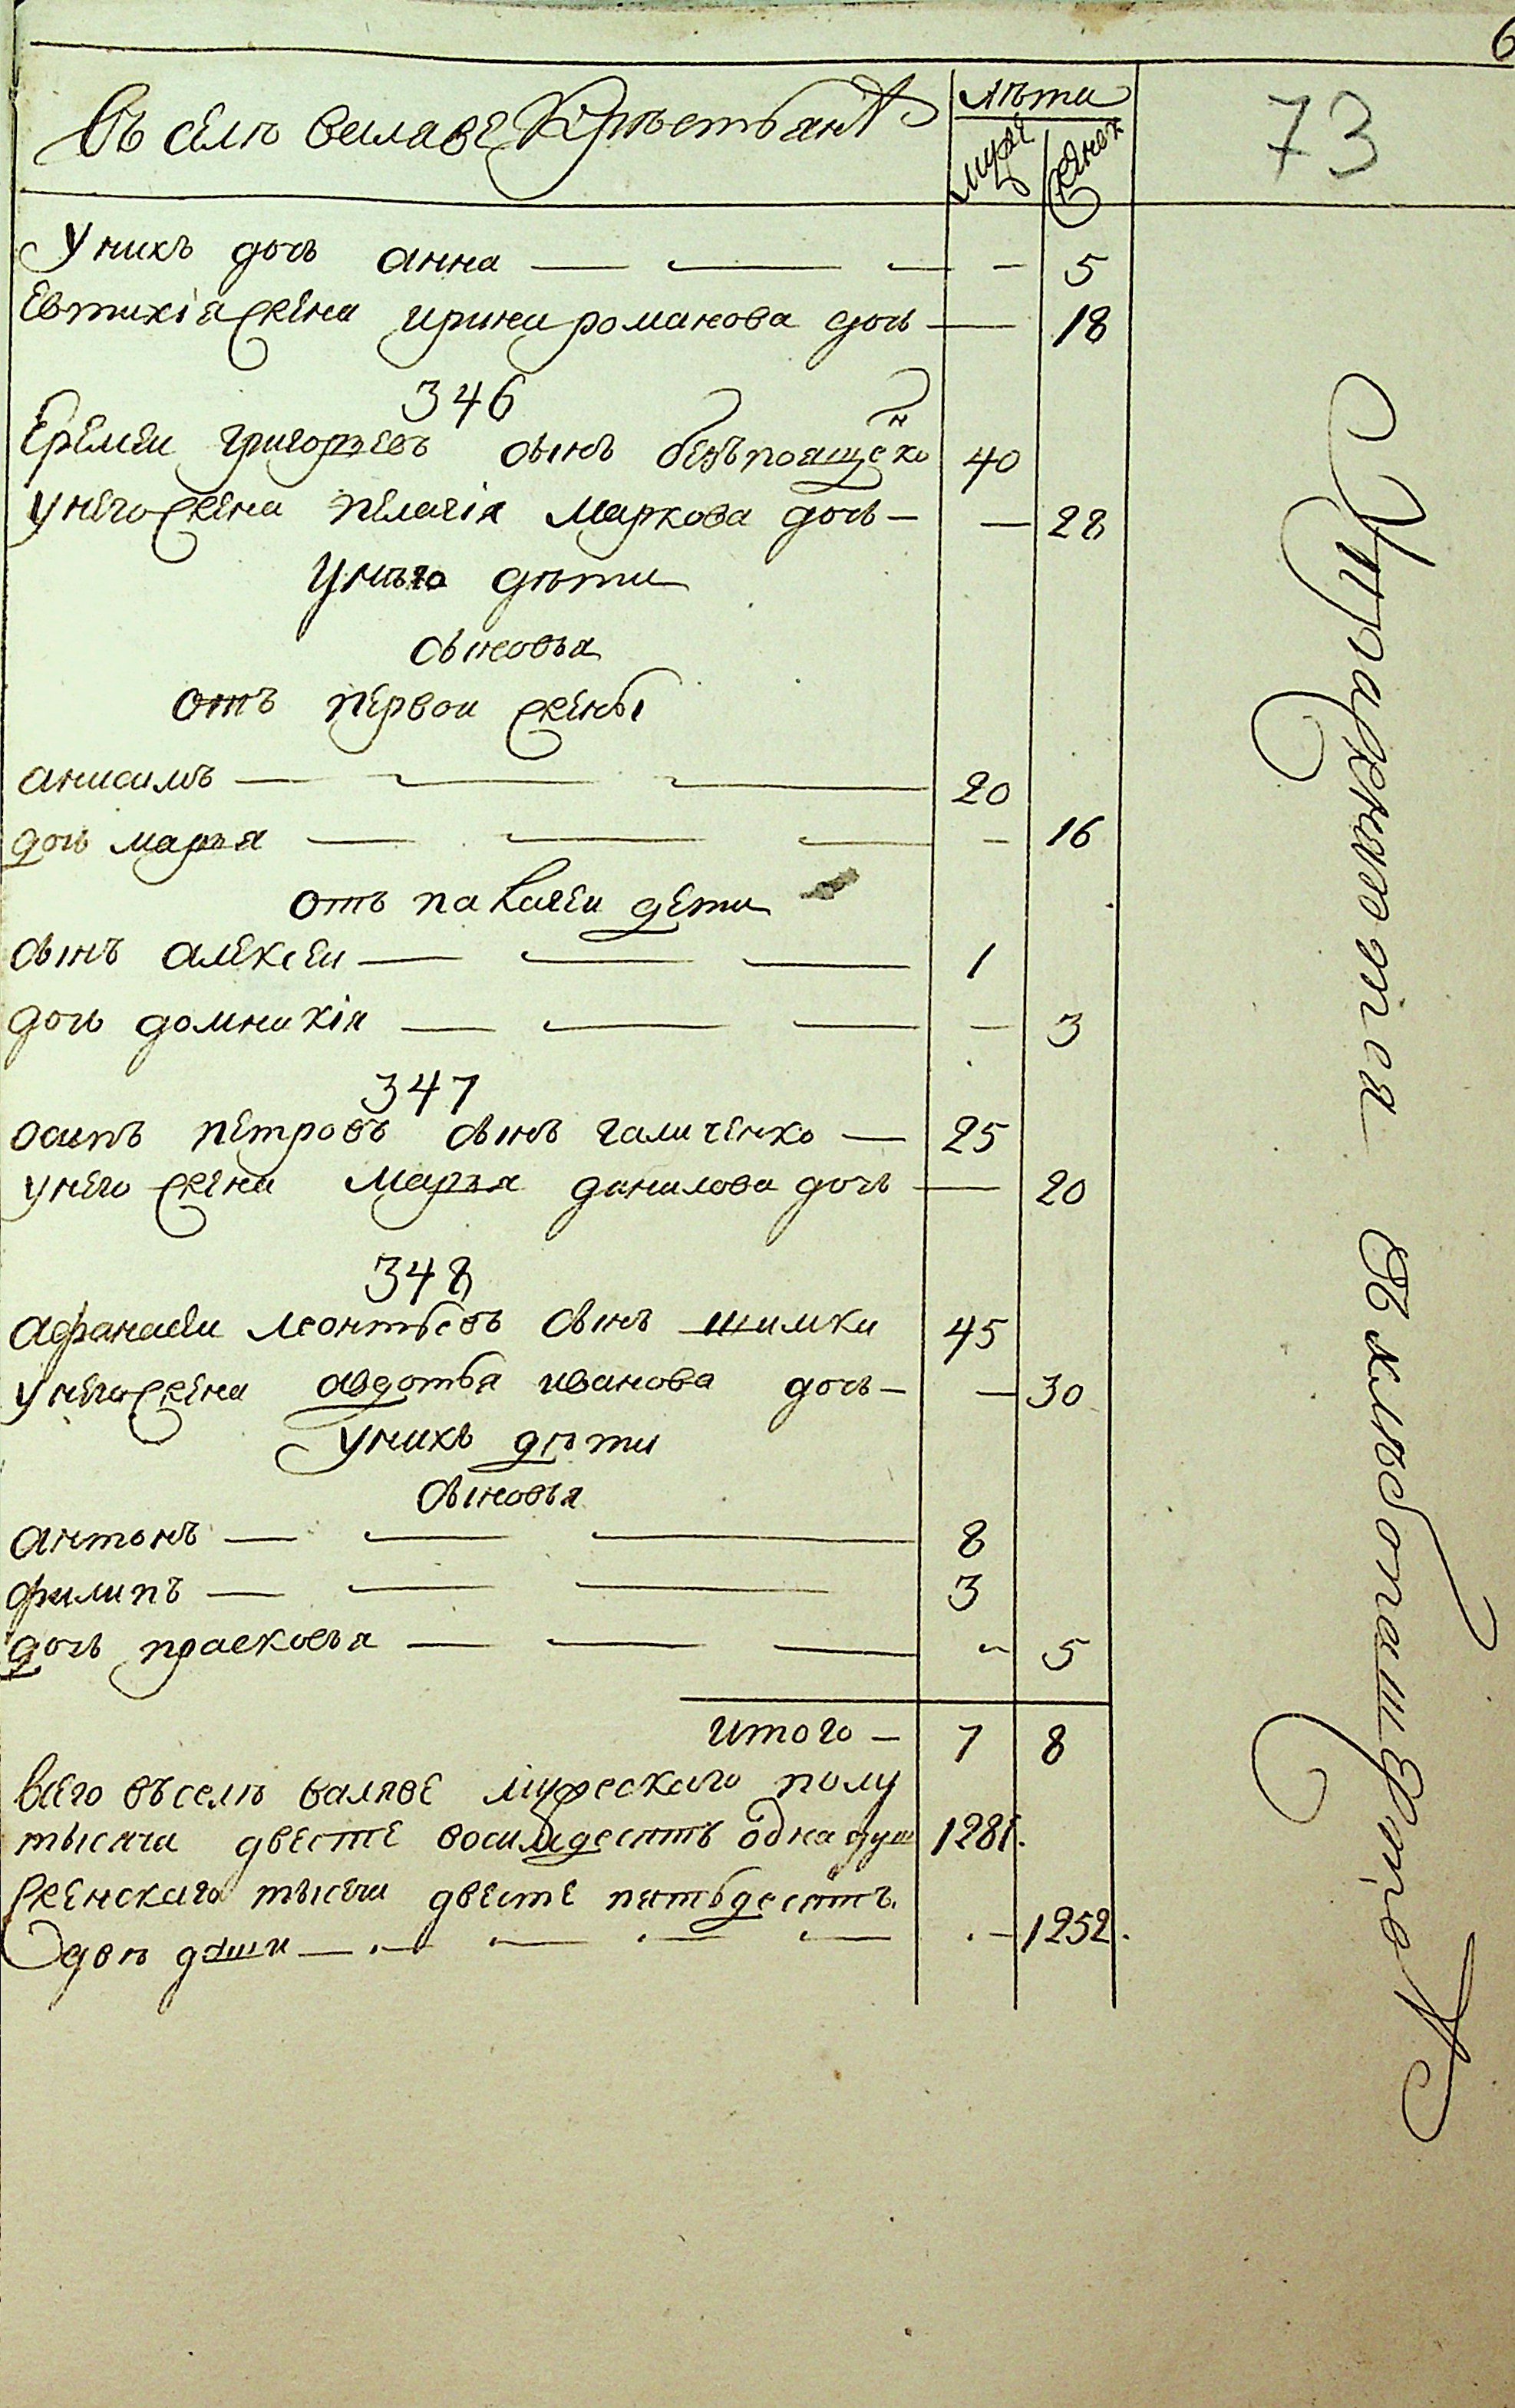 6
73
Въ селѣ валяве Крѣстьянъ
лѣта
муж женск
У нихъ дочь анна — — — — 5
Евтихія жена ирина романова дочь — 18
346
Еремеи григорьевъ сынъ безъпоященко 40
у него жена пелагія маркова дочь — — 28
У нѣго дѣти
сыновья
отъ первои жены
анисимъ — — — 20
дочь марья — — — — 16
отъ дети
сынъ алексеи — — — 1
дочь домникія — — — — 3
347
осипъ петровъ сынъ галиченко — 25
у него жена марья данилова дочь — 20
348
афанасеи леонтьевъ сынъ шимка 45
у него жена авдотья иванова дочь — — 30
У нихъ дѣти
сыновья
антонъ — — — 8
филипъ — — — 3
дочь прасковья — — — — 5
итого — 7 8
всего въ селѣ валяве мужескаго полу
тысяча двесте восимдесятъ одна душ 1281.
женскаго тысеча двесте пятьдесятъ
две души — — — — — . — 1252.